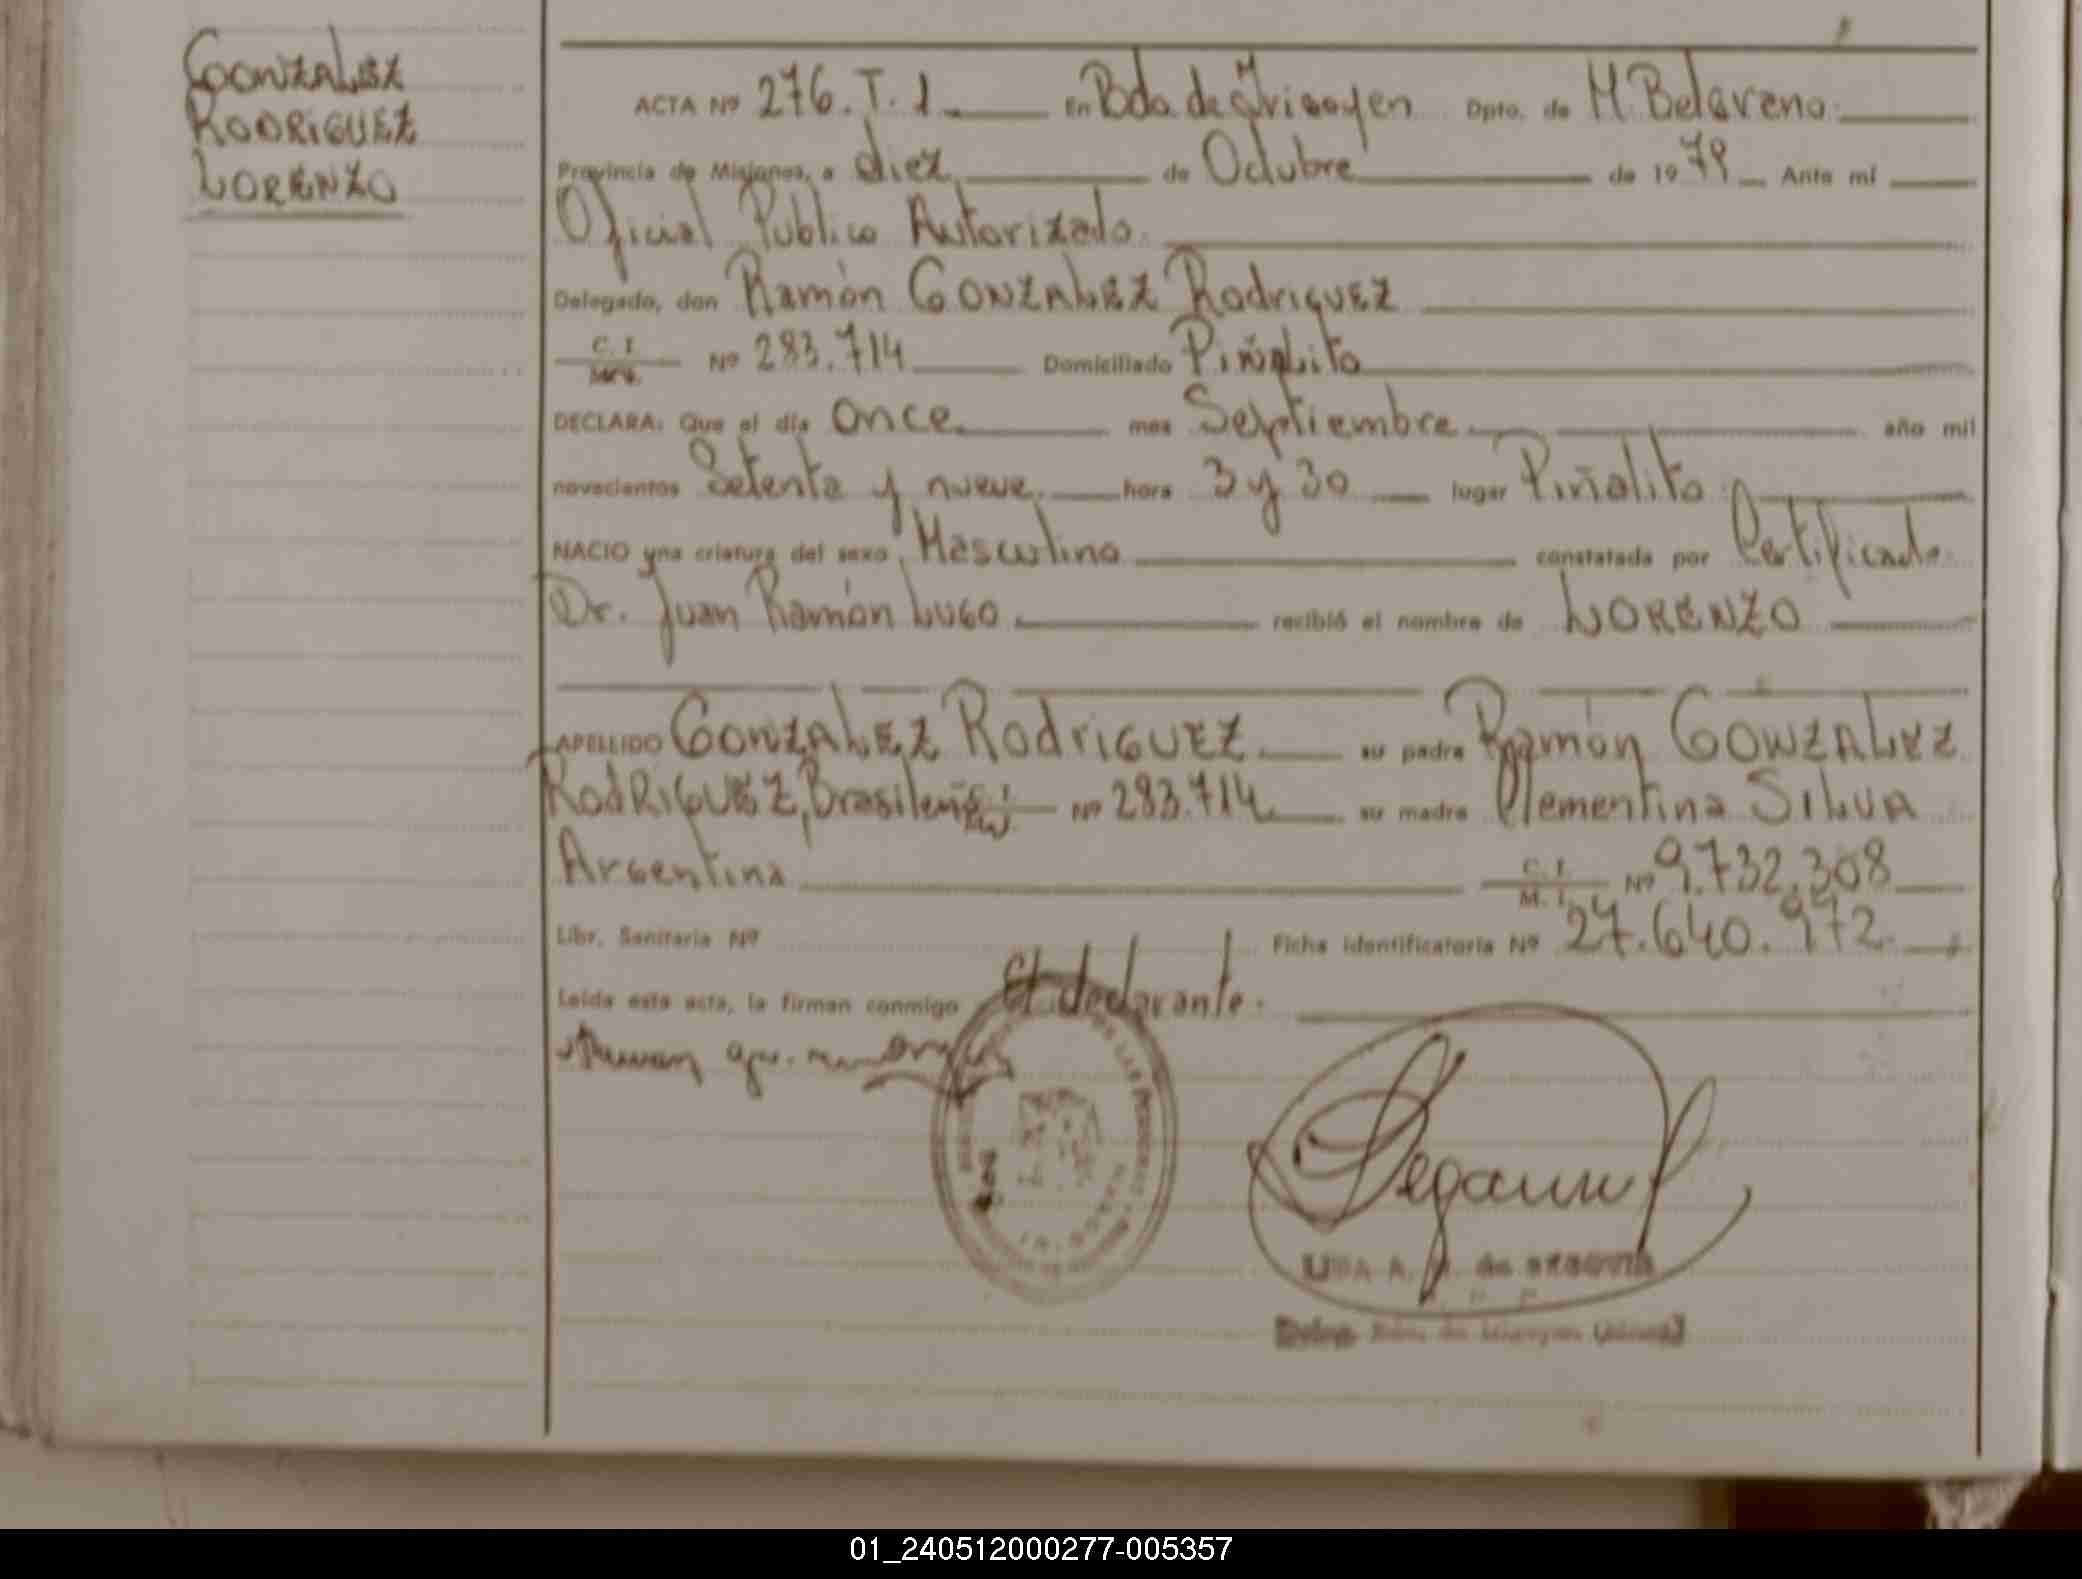 GONZALEZ
RODRIGUEZ
LORENZO
ACTA Nº 276. T. 1 En Bdo. de Yrigoyen Dpto. de M. Belgrano
Provincia de Misiones, a diez de Octubre de 1979 Ante mí
Oficial Público Autorizado
Delegado, don Ramón GONZALEZ RodriguEZ
C. I. Nº 283.714 Domiciliado Piñalito
DECLARA: Que el día once mes Septiembre año mil
novecientos Setenta y nueve hora 3 y 30 lugar Piñalito
NACIO una criatura del sexo Masculino constatada por Certificado
Dr. Juan Ramón Lugo recibió el nombre de LORENZO
APELLIDO GonzalEZ RodriGUEZ su padre Ramón GONZALEZ
RodRIGUEZ, Brasileño C. I. Nº 283.714 su madre Clementina SILVA
Argentina C. I. M. I. Nº 9.732.308
Libr. Sanitaria Nº Ficha identificatoria Nº 27.640.972
Leída esta acta, la firman conmigo El declarante.
LAS PERSONAS
A. de
01_240512000277-005357